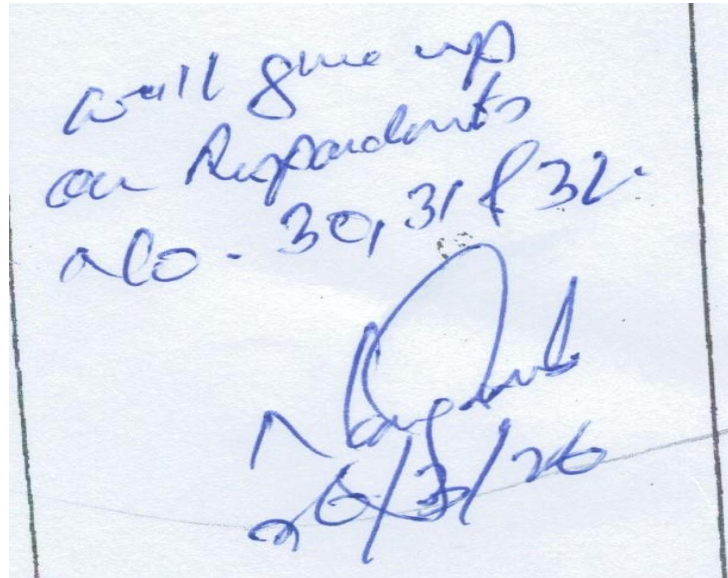 will give up
on Respondents
No. 30, 31 & 32.
26/3/26